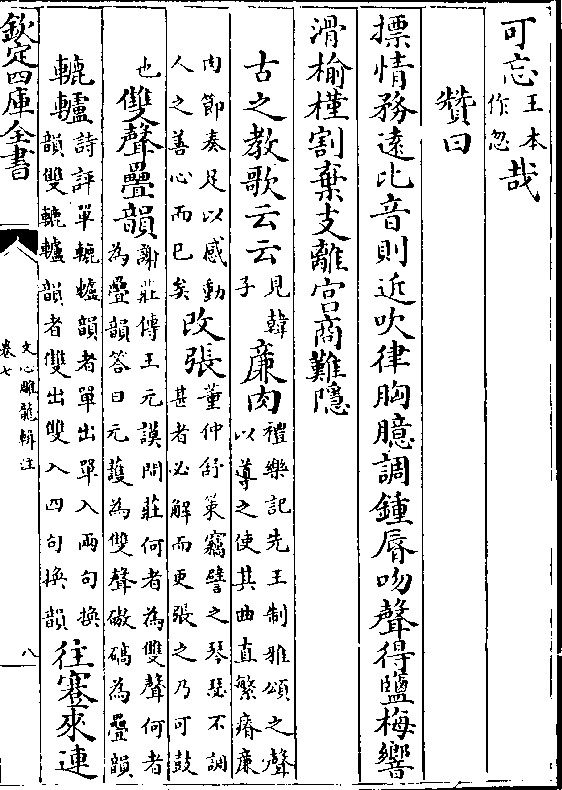 可忘王本作忽哉
贊曰
摽情務遠比音則近吹律胸臆調鍾脣吻聲得鹽梅響
滑榆槿割棄支離宮商難隱
古之教歌云云見韓子廉肉禮樂記先王制雅頌之聲以導之使其曲直繁瘠廉
肉節奏足以感動人之善心而已矣改張董仲舒策竊譬之琴瑟不調甚者必解而更張之乃可鼓
也雙聲疊韻謝莊傳王元謨問莊何者為雙聲何者為疊韻答曰元護為雙聲磝碻為疊韻
轆轤詩評單轆轤韻者單出單入兩句換韻雙轆轤韻者雙出雙入四句換韻往蹇來連
欽定四庫全書
文心雕龍輯注
卷七
八